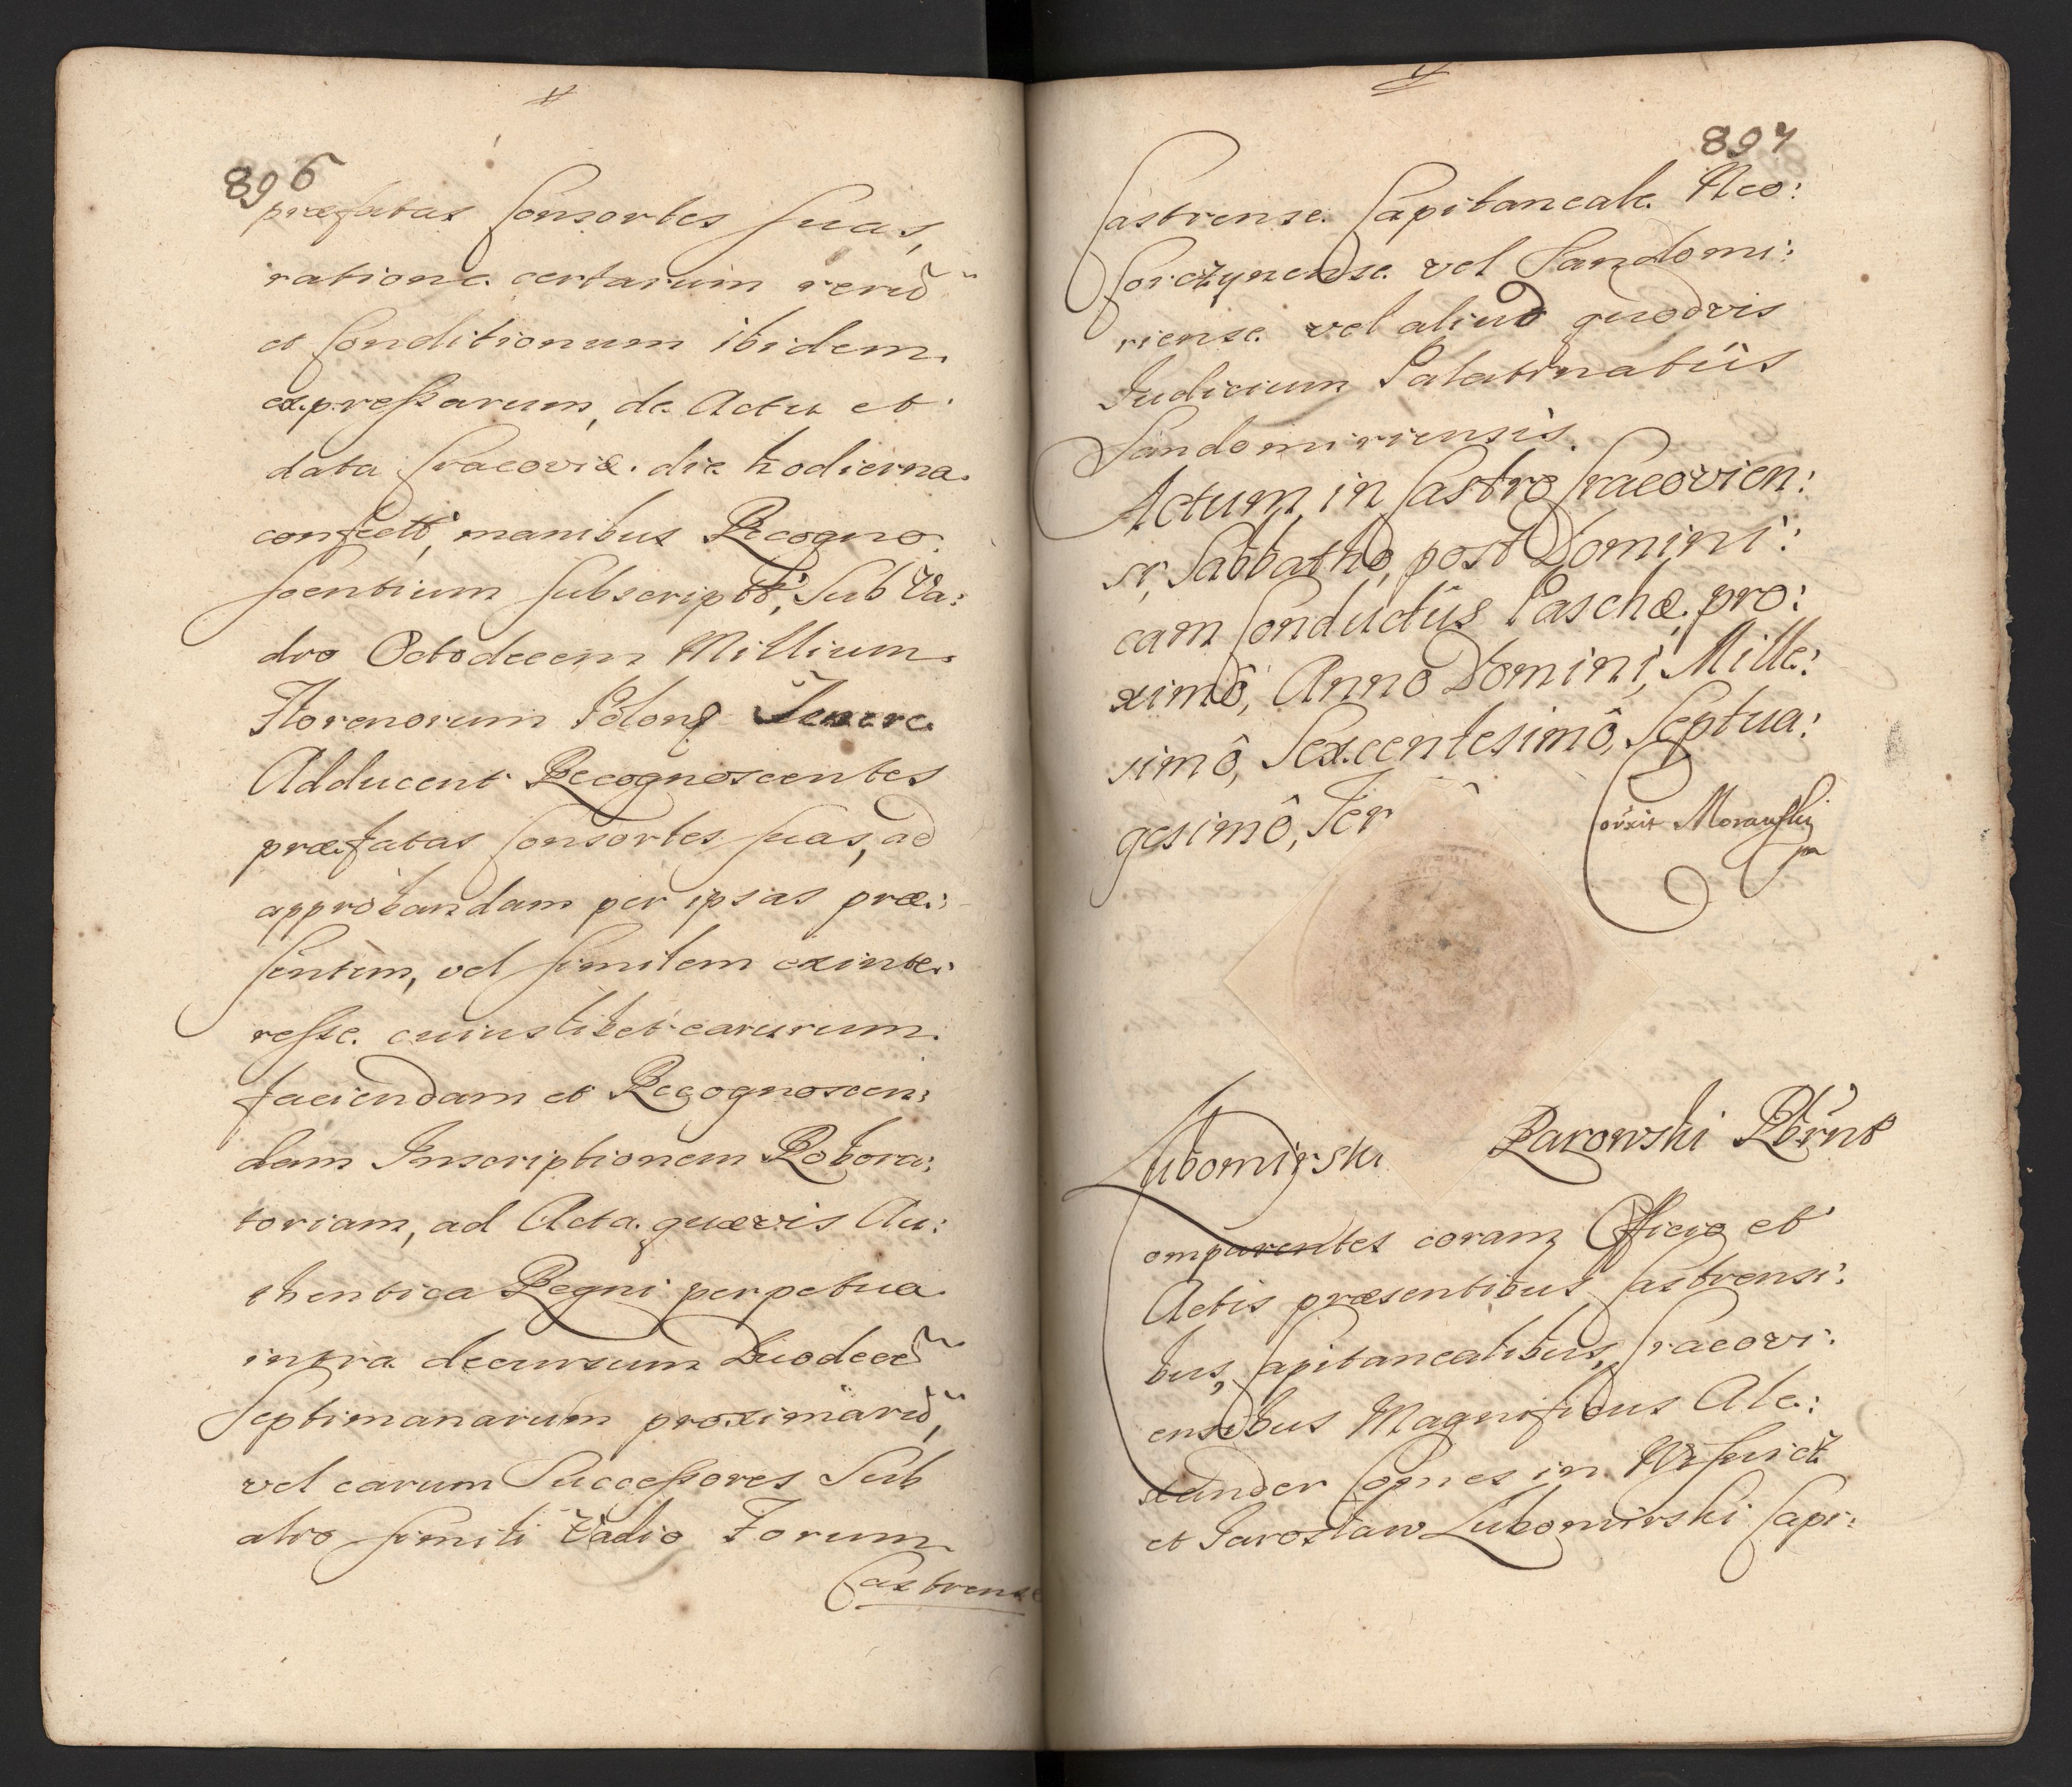 896
præfatas Consortes suas,
ratione certarum rerũ
et Conditionum ibidem
expressarum, de Actu et
data Cracoviæ die hodierna
confecti, manibus Recogno:
scentium subscripti, sub Va:
dio Octodecem Millium
Florenorum Polon
Adducent Recognoscentes
præfatas Consortes suas, ad
approbandam per ipsas præ:
sentem, vel similem exinte:
resse cuiuslibet earurum
faciendam et Recognoscen:
dam Inscriptionem Robora:
toriam, ad Acta quævis Au:
thentica Regni perpetua
intra decursum Duodecẽ
Septimanarum proximarũ,
vel earum Successores sub
alio simili Vadio Forum
Castrense
897
Castrense Capitaneale Neo:
Corczynense vel Sandomi:
riense vel aliud quodvis
Iudicium Palatinatûs
Sandomiriensis.
Actum in Castro Cracovien:
si, Sabbatho, post Domini:
cam Conductûs Paschæ pro:
ximô, Anno Domini, Mille:
simô, Sexcentesimô, Septua:
gesimô, Ter
Correxit Morawski
mp
Lubomirski Rarowski
Comparentes coram Officio et
Actis præsentibus Castrensi:
bus, Capitanealibus, Cracovi:
ensibus Magnificus Ale:
xander Comes in Wisnicz
et Jarosław Lubomirski Capi: